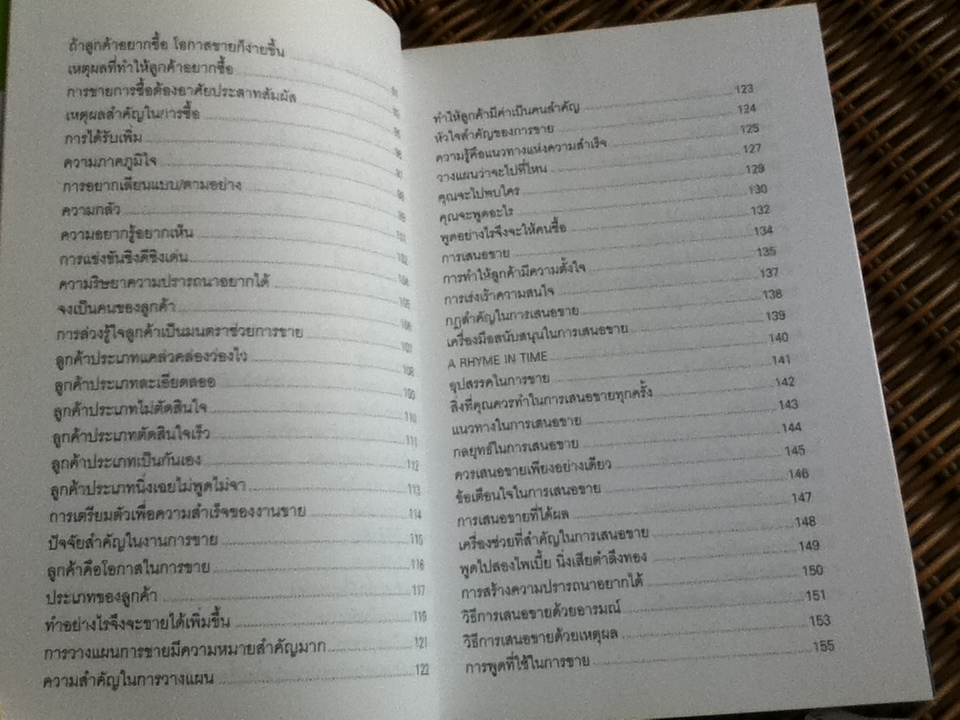 ถ้าลูกค้าอยากซื้อ โอกาสขายก็ง่ายขึ้น
เหตุผลที่ทำให้ลูกค้าอยากซื้อ
การขายการซื้อต้องอาศัยประสาทสัมผัส
เหตุผลสำคัญในการซื้อ
การได้รับเพิ่ม
ความภาคภูมิใจ
การอยากเลียนแบบ/ตามอย่าง
ความกลัว
ความอยากรู้อยากเห็น
การแข่งขันชิงดีชิงเด่น
ความริษยาความปรารถนาอยากได้
จงเป็นคนของลูกค้า
การล่วงรู้ใจลูกค้าเป็นมนตราช่วยการขาย
ลูกค้าประเภทแคล่วคล่องว่องไว 108
ลูกค้าประเภทละเอียดลออ 109
ลูกค้าประเภทไม่ตัดสินใจ 110
ลูกค้าประเภทตัดสินใจเร็ว 111
ลูกค้าประเภทเป็นกันเอง 112
ลูกค้าประเภทนิ่งเฉยไม่พูดไม่จา 113
การเตรียมตัวเพื่อความสำเร็จของงานขาย 114
ปัจจัยสำคัญในงานการขาย 115
ลูกค้าคือโอกาสในการขาย 116
ประเภทของลูกค้า 117
ทำอย่างไรจึงจะขายได้เพิ่มขึ้น 119
การวางแผนการขายมีความหมายสำคัญมาก 121
ความสำคัญในการวางแผน 122
ทำให้ลูกค้ามีค่าเป็นคนสำคัญ 123
หัวใจสำคัญของการขาย 124
ความรู้คือแนวทางแห่งความสำเร็จ 125
วางแผนว่าจะไปที่ไหน 127
คุณจะไปพบใคร 129
คุณจะพูดอะไร 130
พูดอย่างไรจึงจะให้คนซื้อ 132
การเสนอขาย 134
การทำให้ลูกค้ามีความตั้งใจ 135
การเร่งเร้าความสนใจ 137
กฎสำคัญในการเสนอขาย 138
เครื่องมือสนับสนุนในการเสนอขาย 139
A RHYME IN TIME 140
อุปสรรคในการขาย 141
สิ่งที่คุณควรทำในการเสนอขายทุกครั้ง 142
แนวทางในการเสนอขาย 143
กลยุทธ์ในการเสนอขาย 144
ควรเสนอขายเพียงอย่างเดียว 145
ข้อเตือนใจในการเสนอขาย 146
การเสนอขายที่ได้ผล 147
เครื่องช่วยที่สำคัญในการเสนอขาย 148
พูดไปสองไพเบี้ย นิ่งเสียตำลึงทอง 149
การสร้างความปรารถนาอยากได้ 150
วิธีการเสนอขายด้วยอารมณ์ 151
วิธีการเสนอขายด้วยเหตุผล 153
การพูดที่ใช้ในการขาย 155